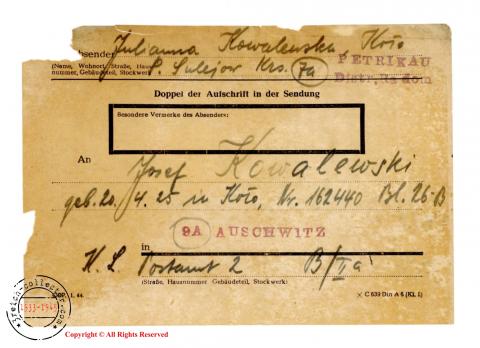 Absender Julianna Kowalewska, Koło
(Name, Wohnort, Straße, Haus-
nummer, Gebäudeteil, Stockwerk)
P. Sulejow Krs. 7a
PETRIKAU
Distr. Radom
Doppel der Aufschrift in der Sendung
Besondere Vermerke des Absenders:
An Josef Kowalewski
geb. 20. 4. 25 in Koło, Nr. 162440 Bl. 26-B
9A AUSCHWITZ
in
K. L. Postamt 2 B/IIa
(Straße, Hausnummer Gebäudeteil, Stockwerk)
1. 44.
C 639 Din A 6 (Kl. I)
3reich-collector.com
1933-1945
Copyright © All Rights Reserved